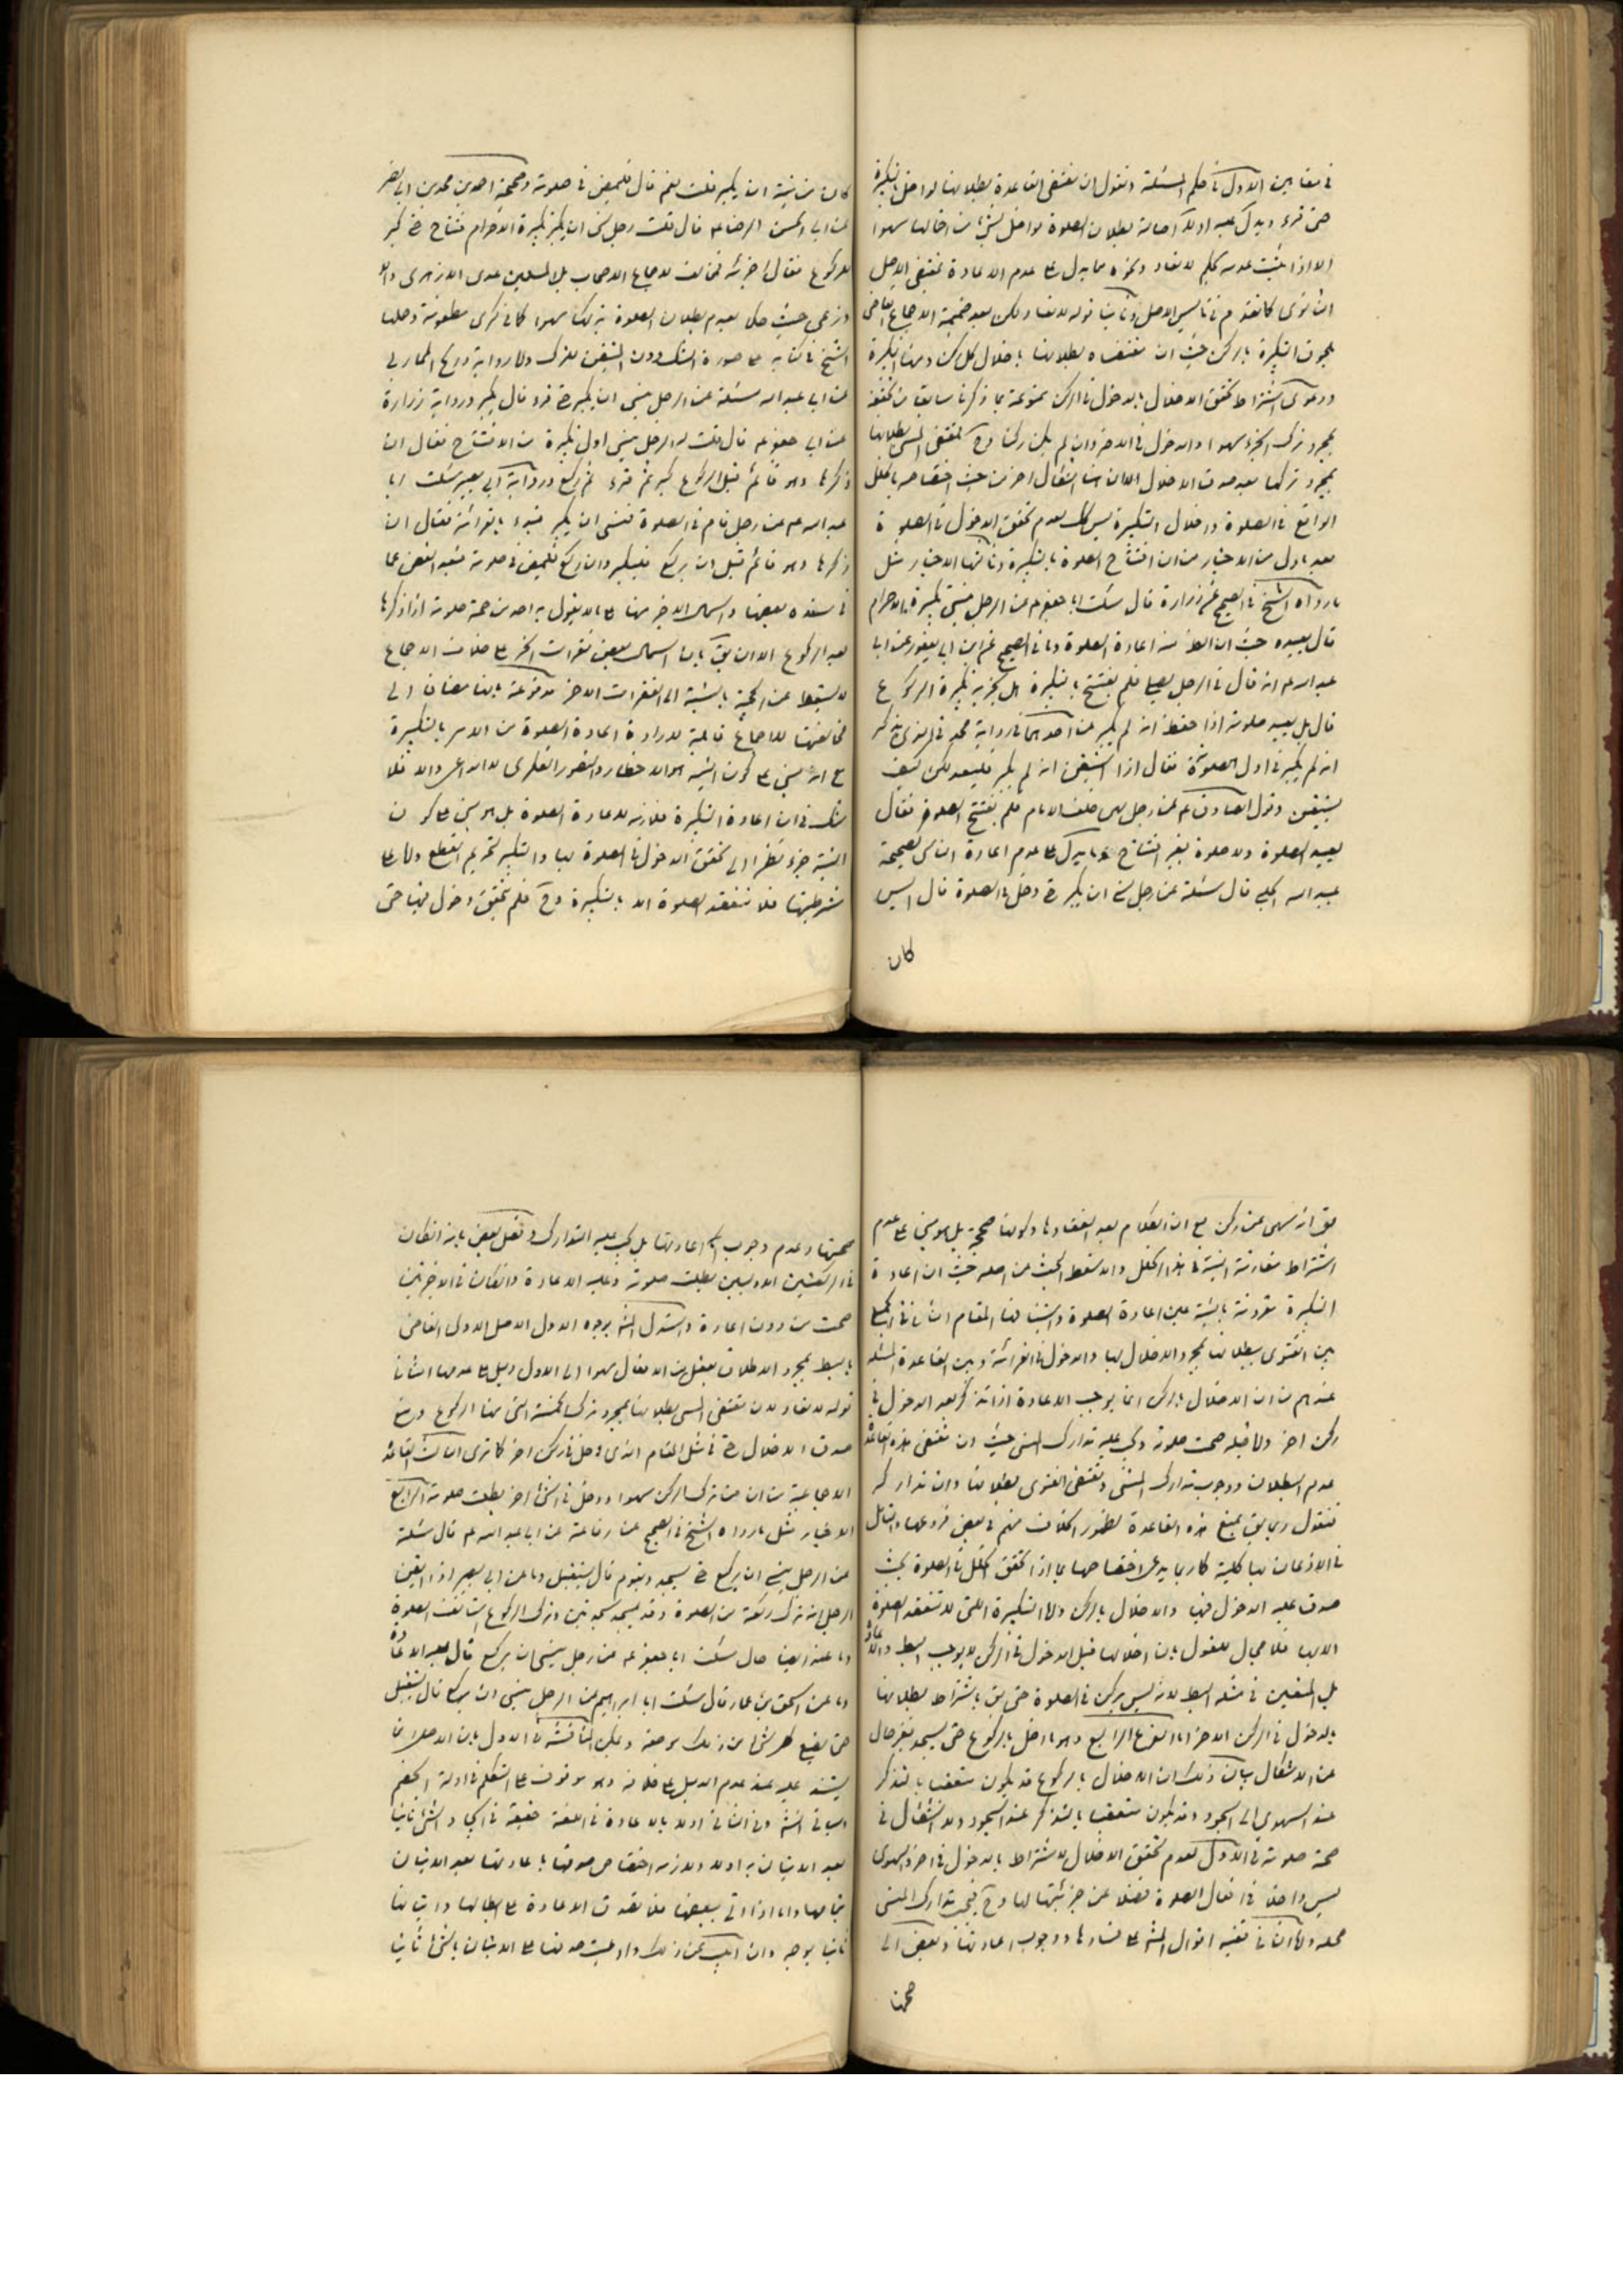 في مقامين الاول في حكم المسئلة فنقول ان مقتضى القاعدة بطلانها لو اخل بالتكبيرة
حتى قرء ويدل عليه اولا اصالة بطلان الصلوة لو اخل بشيء من افعالها سهوا
الا اذا ثبت عدمه بحكم لا تعاد ونحوه مما يدل على عدم الاعادة بمقتضى الاصل
الثانوى كما تقدم في تاسيس الاصل وثانيا قوله لا تعاد ولكن بعد ضميمة الاجماع القاضى
بلحوق التكبيرة بالركن حيث ان مقتضاه بطلانها باخلال كل ركن ومنها التكبيرة
ودعوى اشتراط تحقق الاخلال بالدخول في الركن ممنوعة بما ذكرنا سابقا من تحققه
بمجرد ترك الجزء سهوا والدخول في الاخر وان لم يكن ركنا وح فمقتضى بطلانها
بمجرد تركها بعد صدق الاخلال الا ان هنا اشكال اخر من حيث اختصاصه بالخلل
الواقع في الصلوة واخلال التكبيرة ليس كك لعدم تحقق الدخول في الصلوة
بعد ما دل من الاخبار من ان افتتاح الصلوة بالتكبيرة وثالثا الاخبار مثل
ما رواه الشيخ في الصحيح عن زرارة قال سئلت ابا جعفر ع عن الرجل ينسى تكبيرة الاحرام
قال يعيده حيث ان الظ منه اعادة الصلوة وما في الصحيح عن ابن ابي يعفور عن ابي
عبد الله ع انه قال في الرجل يصلي فلم يفتتح بالتكبيرة هل تجزيه تكبيرة الركوع
قال بل يعيد صلوته اذا حفظ انه لم يكبر عن احدهما في رواية محمد في الذي يذكر
انه لم يكبر في اول الصلوة فقال اذا استيقن انه لم يكبر فليعد ولكن كيف
يستيقن وقول الصادق ع عن رجل سهى خلف الامام فلم يفتتح الصلوة فقال
يعيد الصلوة ولا صلوة بغير افتتاح وما يدل على عدم اعادة الناسي كصحيحة
عبيد الله الحلبي قال سئلته عن رجل نسي ان يكبر حتى دخل في الصلوة قال اليس
كان
كان من نيته ان يكبر قلت نعم قال فليمض في صلوته وصحيحة احمد بن محمد بن ابي نصر
عن ابي الحسن الرضا ع قال قلت رجل نسي ان يكبر تكبيرة الافتتاح حتى كبر
للركوع فقال اجزئه فمخالف لاجماع الاصحاب بل المسلمين عدى الازهرى
وزعى حيث حكى بعدم بطلان الصلوة بتركها سهوا كما في ذكرى مطعونة وحملها
الشيخ في كتابيه على صورة الشك دون المتيقن للترك واما رواية
عن ابي عبد الله سئلته عن الرجل ينسى ان يكبر حتى قرء قال يكبر ورواية زرارة
عن ابي جعفر ع قال قلت له الرجل ينسى اول تكبيرة من الافتتاح فقال ان
ذكرها وهو قائم قبل الركوع كبر ثم قرء ثم ركع ورواية ابي بصير سئلت ابا
عبد الله ع عن رجل قام في الصلوة فنسى ان يكبر فبدء بالقرائة فقال ان
ذكرها وهو قائم قبل ان يركع فليكبر وان ركع فليمض في صلوته فبعد الغض عما
في سنده بعضها واشتمال الاخير منها على ما لا يقول به احد من صحة صلوته اذا ذكرها
بعد الركوع الا ان يقال بان اشتمال بعض فقرات الخبر على خلاف الاجماع
لا يسقطه عن الحجية بالنسبة الى الفقرات الاخر مدفوعة بانها مضافا الى
مخالفتها للاجماع قابلة لارادة اعادة الصلوة من الامر بالتكبيرة
مع انه مبني على كون النية هو الاخطار والتصور الفكرى لا الداعى والا فلا
شك في ان اعادة التكبيرة ملازمة لاعادة الصلوة بل هو مبني على كون
النية جزء نظرا الى تحقق الدخول في الصلوة بها والتكبير تحريم القطع واما على
شرطيتها فلا تنعقد الصلوة الا بالتكبيرة وح فلم يتحقق دخول فيها حتى
يق انه سهى عن ركن مع ان الكلام بعد انعقادها وكونها صحيحة بل هو مبني على عدم
اشتراط مقارنة النية في هذا الخلل والا سقط البحث من اصله حيث ان اعادة
التكبيرة مقرونة بالنية عين اعادة الصلوة المقام الثاني في الجمع
بين الفتوى ببطلانها بمجرد الاخلال بها والدخول في القرائة وبين القاعدة المسلمة
عندهم من ان الاخلال بالركن انما يوجب الاعادة اذا تذكر بعد الدخول في
ركن اخر واما قبله صحت صلوته ويجب عليه تدارك المنسى حيث ان مقتضى هذه القاعدة
عدم البطلان ووجوب تدارك المنسى ومقتضى الفتوى بطلانها وان تدارك
فنقول ربما يق بمنع هذه القاعدة لظهور الخلاف منهم في بعض فروعها والتامل
في الاذعان بها كلية كما ربما يدعى اختصاصها بما اذا تحقق الخلل في الصلوة بحيث
صدق عليه الدخول فيها والاخلال بالركن واما التكبيرة التي لا تنعقد الصلوة
الا بها فلا مجال للقول بان اخلالها قبل الدخول في الركن لا يوجب البط والاعادة
بل المتعين في مثله البط لانه ليس بركن في الصلوة حتى يق باشتراط بطلانها
بالدخول في الركن الاخر اما الفرع الرابع وهو ما اخل بالركوع حتى يسجد فغير خال
عن الاشكال بيان ذلك ان الاخلال بالركوع قد يكون متعقبا بالتذكر
عند الهوى الى السجود وقد يكون متعقبا بالتذكر عند السجود ولا اشكال في
صحة صلوته في الاول لعدم تحقق الاخلال لاشتراطه بالدخول في اخر والهوى
ليس داخلا في افعال الصلوة فضلا عن جزئيتها لها وح فيجب تدارك المنسى
محله واما الثاني ففيه اقوال المش على فسادها ووجوب اعادتها وبعض الى
صحتها
صحتها وعدم وجوب اعادتها بل يجب عليه التدارك وفصل بعض بانه ان كان
في الركعتين الاوليين بطلت صلوته وعليه الاعادة وان كان في الاخرتين
صحت من دون اعادة واستدل المش بوجوه الاول الاصل الاولى القاضى
بالبط بمجرد الاخلال ببعض من الافعال سهوا الى ان يدل دليل على عدمها الثاني
قوله لا تعاد لان مقتضى بطلانها بمجرد ترك الخمسة التي منها الركوع ومنع
صدق الاخلال ح في مثل المقام الذى دخل في ركن اخر كما ترى الثالث القاعدة
الاجماعية من ان من ترك الركن سهوا ودخل في اخر بطلت صلوته الرابع
الاخبار مثل ما رواه الشيخ في الصحيح عن رفاعة عن ابي عبد الله ع قال سئلته
عن الرجل ينسى ان يركع حتى يسجد ويقوم قال يستقبل وما عن ابي بصير اذا ايقن
الرجل انه ترك ركعة من الصلوة وقد سجد سجدتين وترك الركوع استانف الصلوة
وما عنه ايضا قال سئلت ابا جعفر ع عن رجل نسي ان يركع قال عليه الاعادة
وما عن اسحق بن عمار قال سئلت ابا ابراهيم عن الرجل ينسى ان يركع قال يستقبل
حتى يضع كل شيء من ذلك موضعه ويمكن المناقشة في الاول بان الاصل
يستند عليه عند عدم الدليل على خلافه وهو موقوف على التكلم في ادلة الخصم
وسياتي وفي الثاني اولا بان الاعادة في اللغة حقيقة في ايجاد الشيء ثانيا
بعد الاتيان به اولا ولازمه اختصاص صدقها باعادتها بعد الاتيان
بتمامها واما اذا اتى ببعضها فلا تصدق الاعادة على ابطالها واتيانها
ثانيا بوجه وان ابيت عن ذلك وادعيت صدقها على الاتيان بالشيء ثانيا